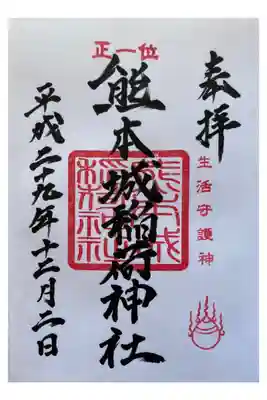 奉拝
生活守護神
正一位
熊本城稲荷神社
平成二十九年十二月二日